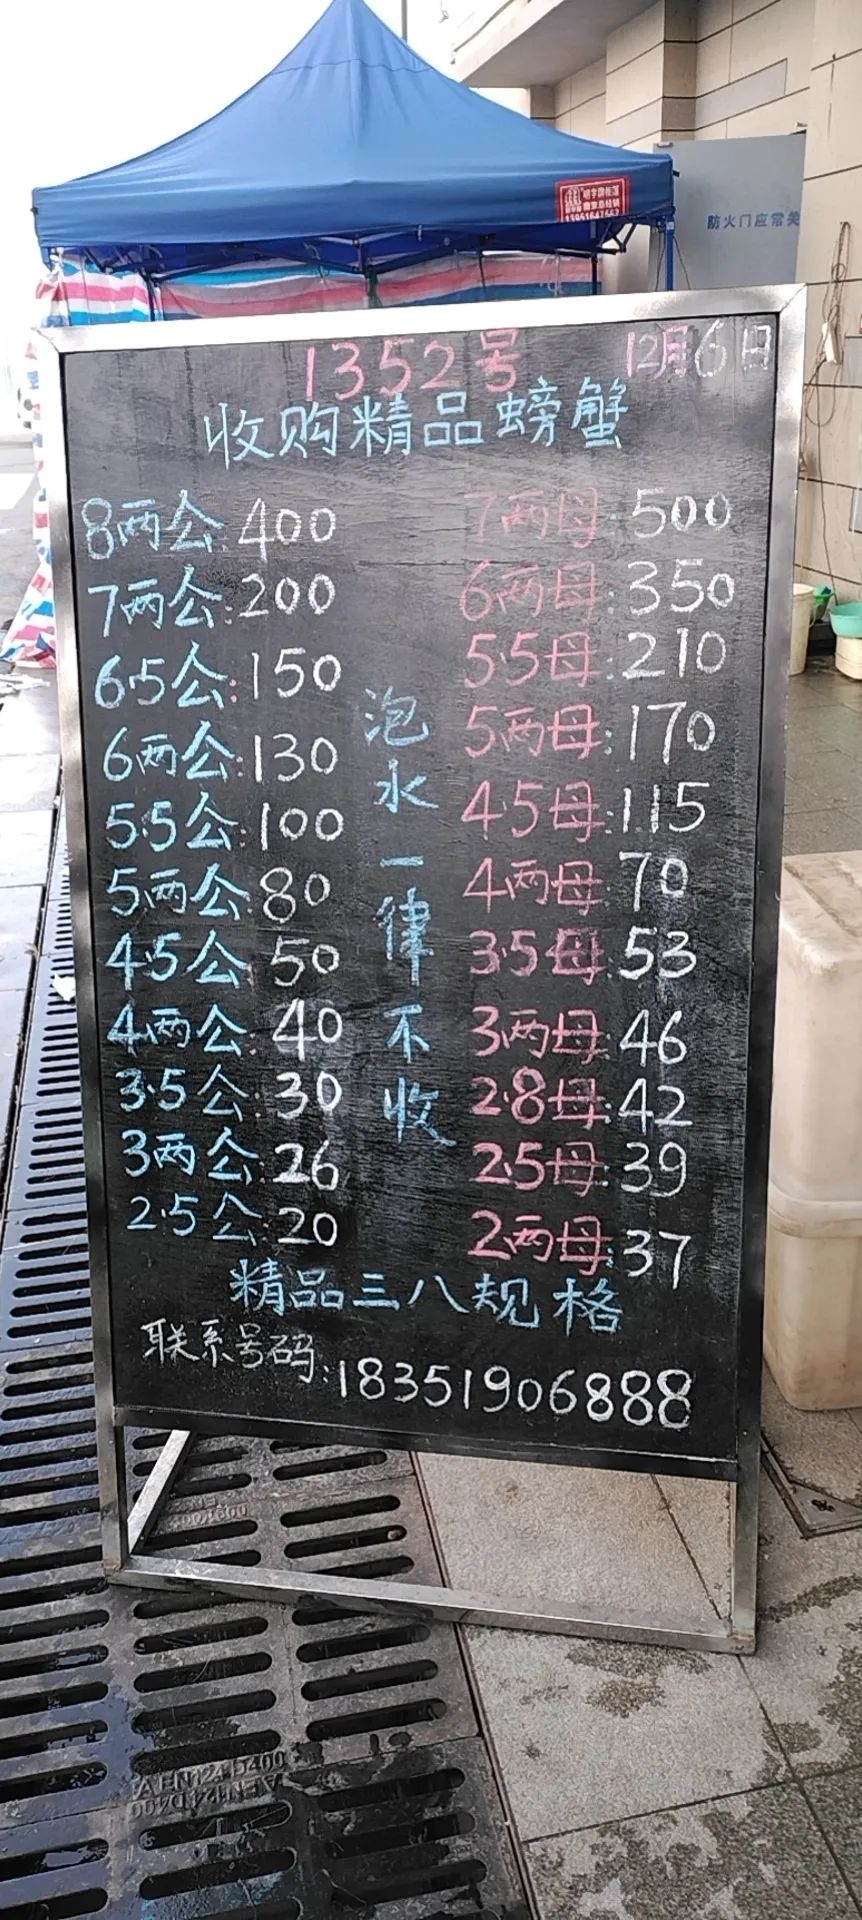 防火门应常关
1352号 12月6日
收购精品螃蟹
8两公:400
7两公:200
6.5公:150
6两公:130
5.5公:100
5两公:80
4.5公:50
4两公:40
3.5公:30
3两公:26
2.5公:20
泡水一律不收
7两母:500
6两母:350
5.5母:210
5两母:170
4.5母:115
4两母:70
3.5母:53
3两母:46
2.8母:42
2.5母:39
2两母:37
精品三八规格
联系号码:18351906888